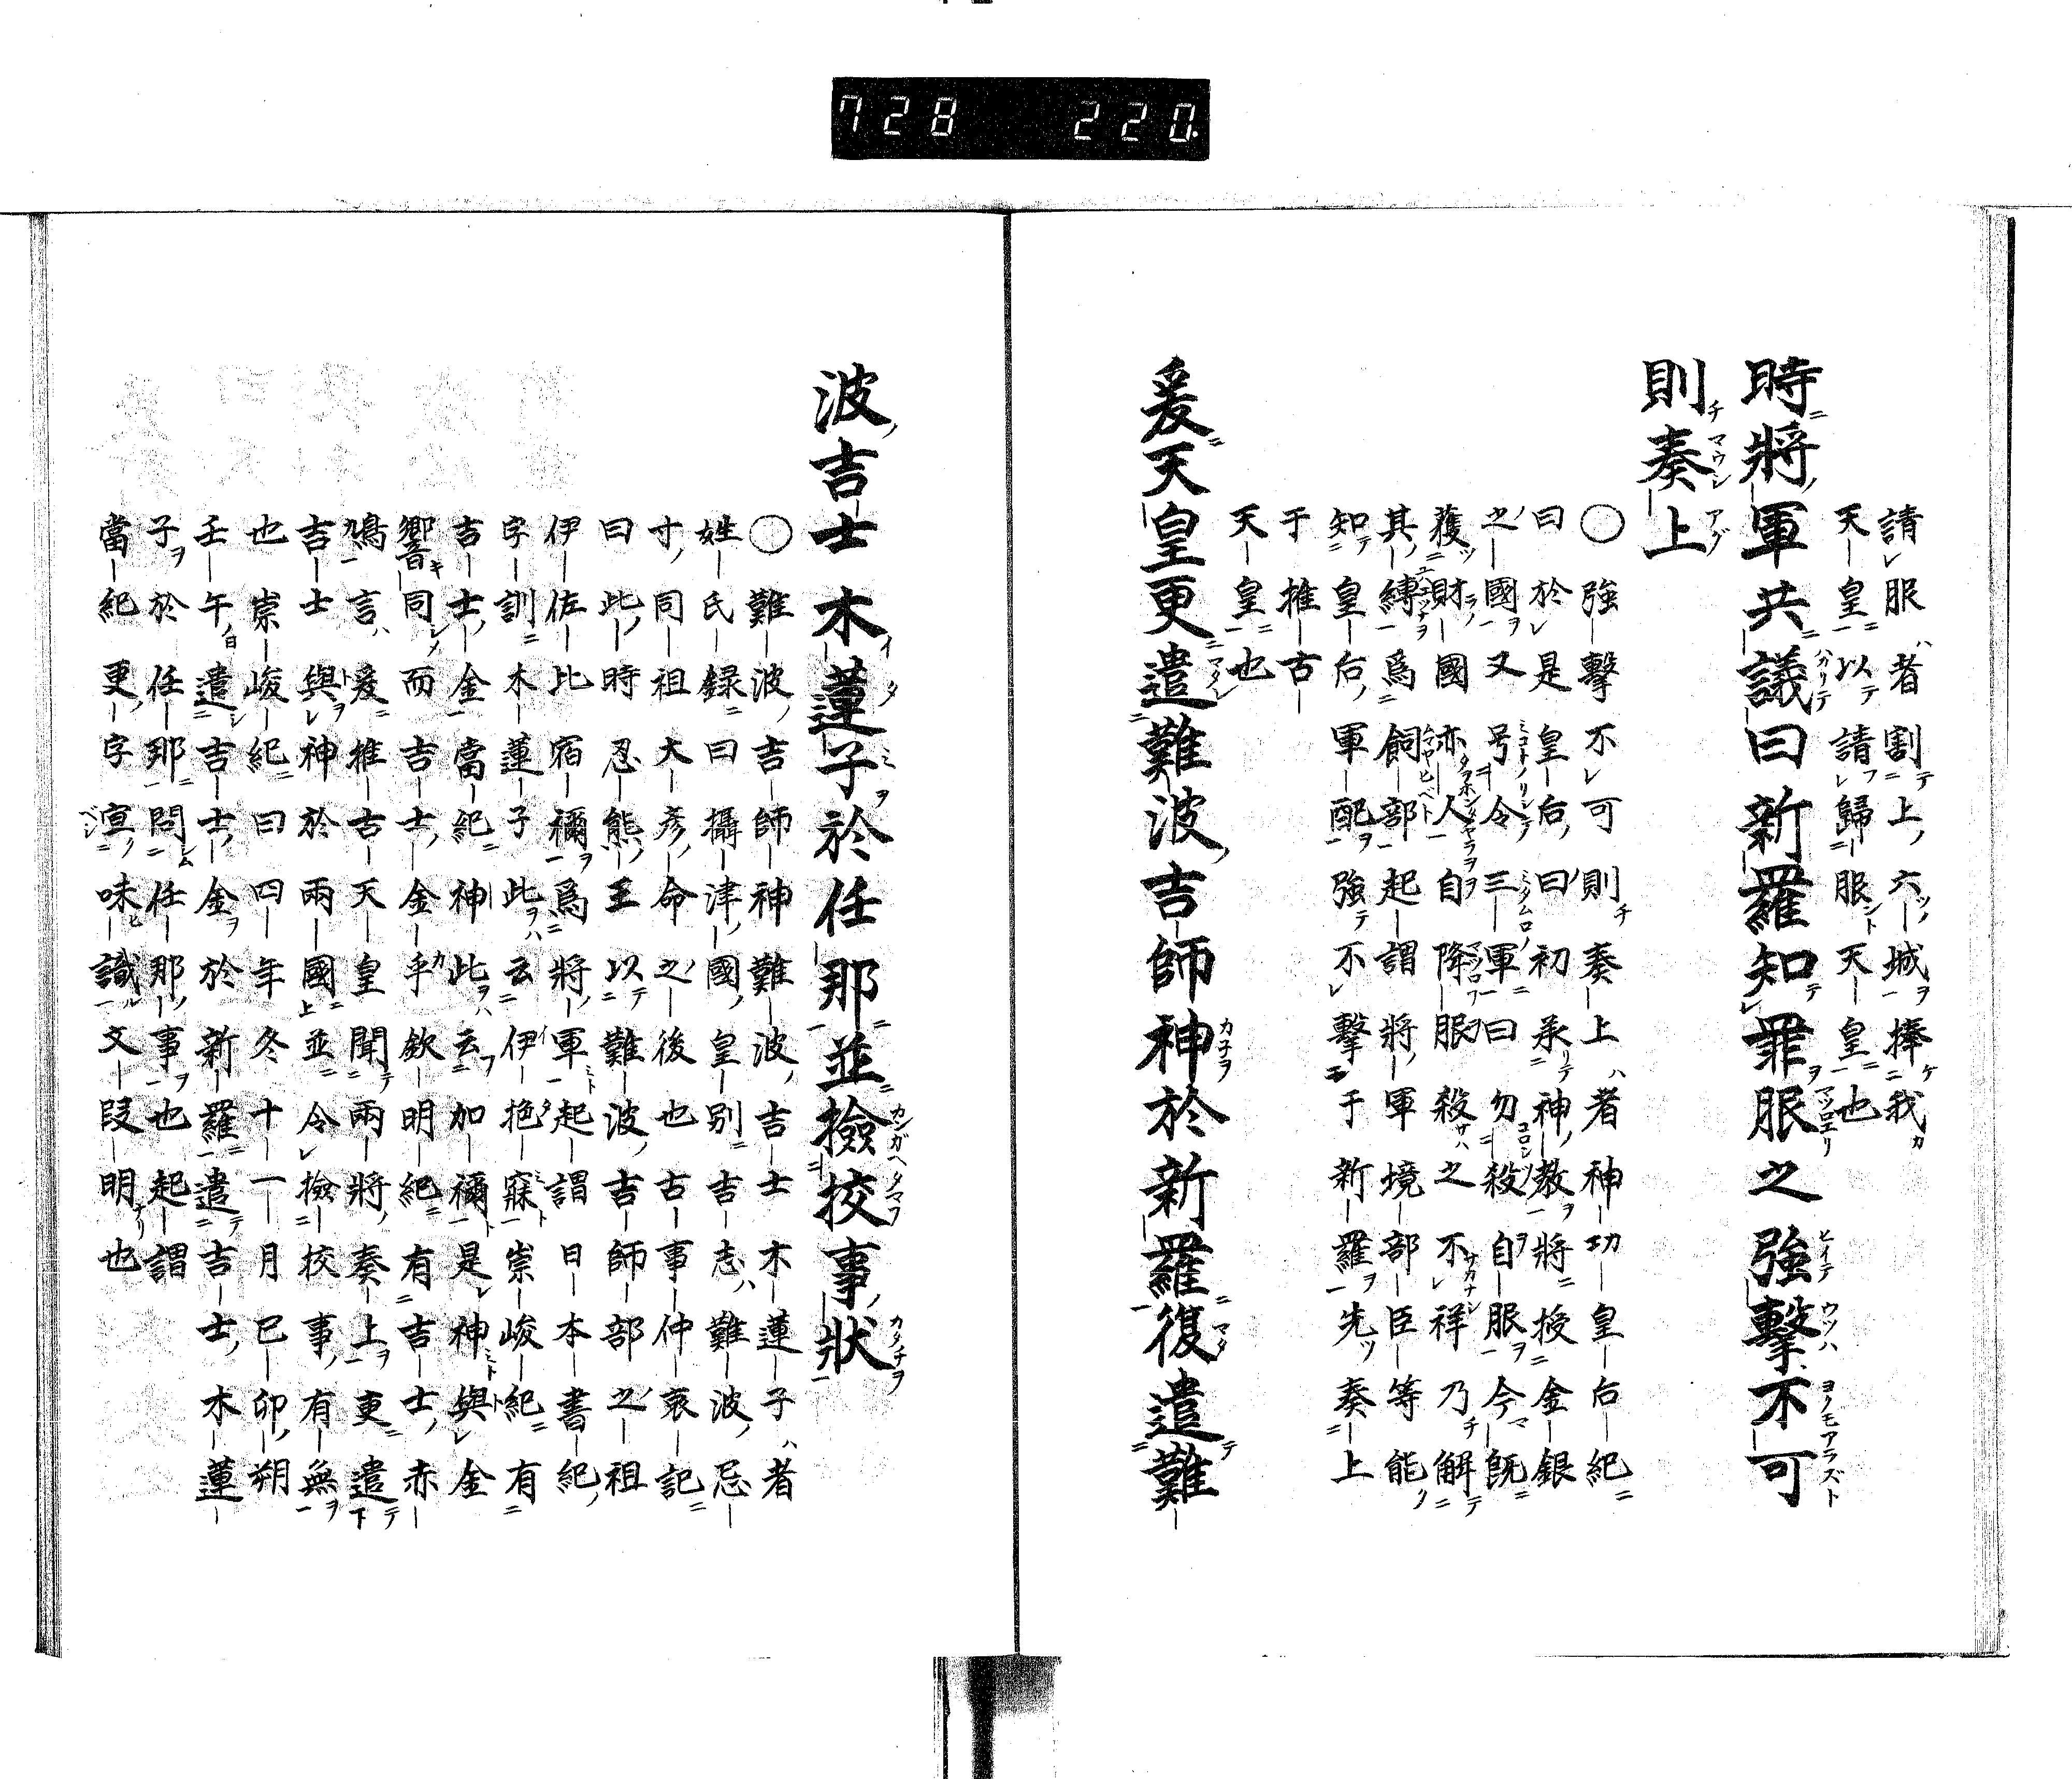 728 220
請服者割上六城捧我
天皇以請歸服天皇也
時將軍共議曰新羅知罪服之強擊不可
則奏上
○強擊不可則奏上者神功皇后紀
曰於是皇后曰初承神教將授金銀
之國又号令三軍曰勿殺自服今既
獲財國亦人自降服殺之不祥乃解
其縛爲飼部起謂將軍境部臣等能
知皇后軍配強不擊于新羅先奏上
于推古
天皇也
爰天皇更遣難波吉師神於新羅復遣難
波吉士木蓮子於任那並撿挍事狀
○難波吉師神難波吉士木蓮子者
姓氏録曰攝津國皇別吉志難波忌
寸同祖大彦命之後也古事仲哀記
曰此時忍熊王以難波吉師部之祖
伊佐比宿禰爲將軍起謂日本書紀
字訓木蓮子此云伊挹寐崇峻紀有
吉士金當紀神此云加禰是神與金
響同而吉士金乎欽明紀有吉士赤
鳩言爰推古天皇聞兩將奏上更遣
吉士與神於兩國並令撿挍事有無
也崇峻紀曰四年冬十一月己卯朔
壬午遣吉士金於新羅遣吉士木蓮
子於任那問任那事也起謂
當紀更字宣味識文段明也